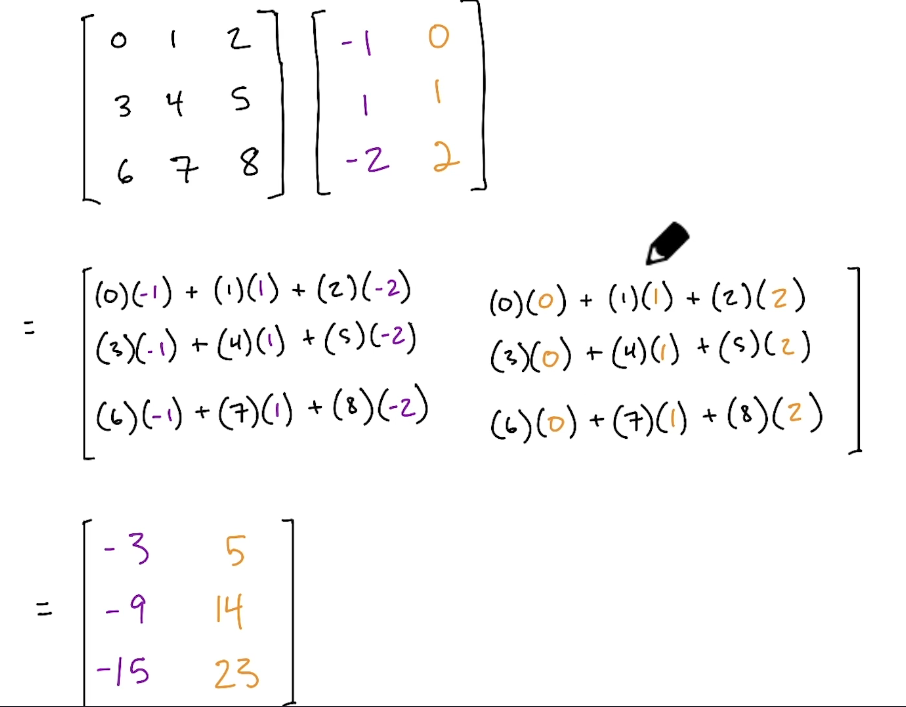 0 1 2 -1 0
3 4 5 1 1
6 7 8 -2 2
= (0)(-1) + (1)(1) + (2)(-2) (0)(0) + (1)(1) + (2)(2)
(3)(-1) + (4)(1) + (5)(-2) (3)(0) + (4)(1) + (5)(2)
(6)(-1) + (7)(1) + (8)(-2) (6)(0) + (7)(1) + (8)(2)
= -3 5
-9 14
-15 23